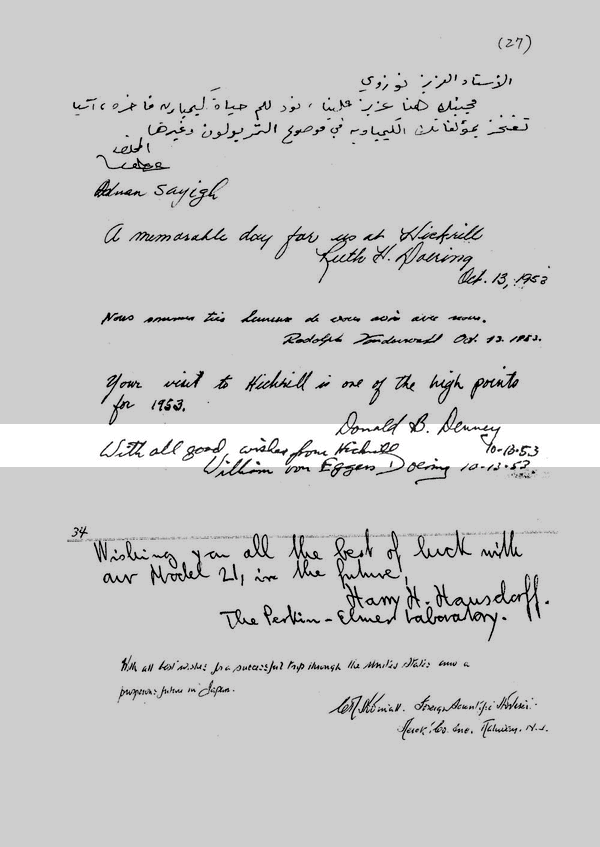 (27)
الأستاذ العزيز نوزوي
مجيئك هنا عزيز علينا، نود لكم حياة كيمياوية فاخرة، آسيا
تفتخر بمؤلفاتك الكيمياوية في موضوع التروپولون وغيرها
المخلص
Adnan Sayigh
A memorable day for us at Hickrill
Ruth H. Doering
Oct. 13, 1953
Nous sommes très heureux de vous avoir avec nous.
Rudolph Vanderwahl Oct. 13. 1953.
Your visit to Hickrill is one of the high points
for 1953.
Donald B. Denney
10-13-53
With all good wishes from Hickrill
William von Eggers Doering 10-13-53
34
Wishing you all the best of luck with
our Model 21, in the future,
Harry H. Hausdorff.
The Perkin-Elmer Laboratory.
With all best wishes for a successful trip through the United States and a
prosperous future in Japan.
Foreign Scientific
Merck & Co. Inc. Rahway, N.J.